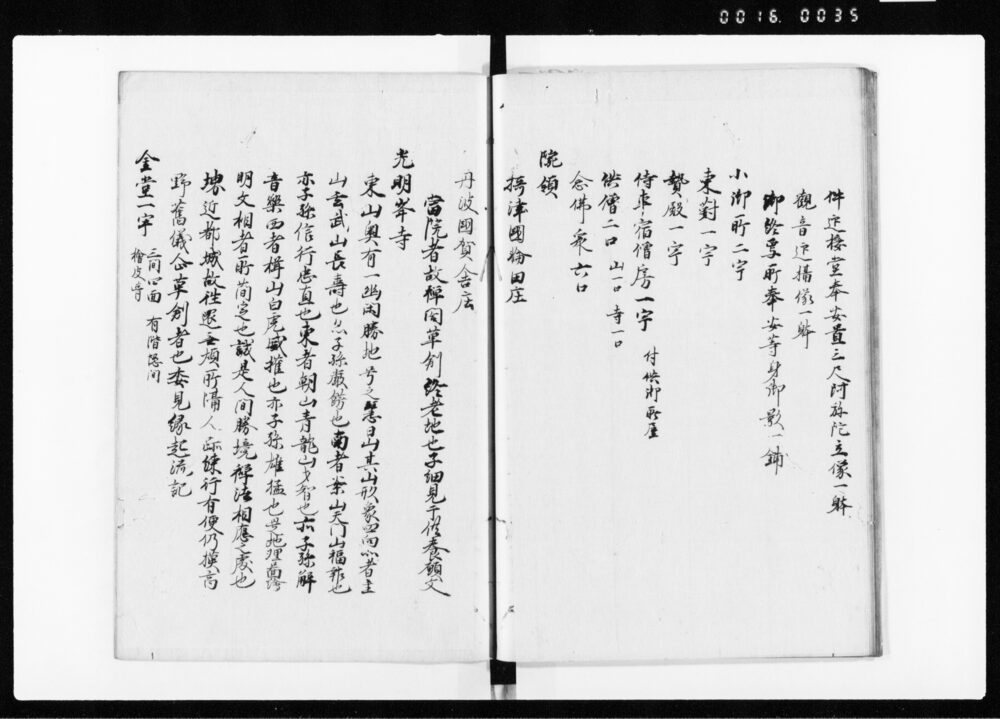 0016 0035
件迎接堂奉安置三尺阿弥陀立像一躰
観音迎摂像一躰
御終焉所奉安等身御影一鋪
小御所二宇
東對一宇
贄殿一宇
侍車宿僧房一宇 付供御所屋
供僧二口 山一口 寺一口
念佛衆六口
院領
摂津國輪田庄
丹波國賀舎庄
當院者故禅閤草創終老地也子細見于供養願文
光明峯寺
東山奥有一幽閑勝地号之恵日山其山形象四向北者主
山玄武山長寿也亦子孫厳鏘也南者案山天門山福祚也
亦子孫信行忠直也東者朝山青龍山才智也亦子孫解
音樂西者輔山白虎威権也亦子孫雄猛也是地理
明文相者所蕳定也誠是人間勝境禅法相應之處也
境近都城故往還無煩所隔人跡練行有便仍摸高
野舊儀企草創者也委見縁起流記
金堂一宇 三間四面 有階隠間
檜皮葺